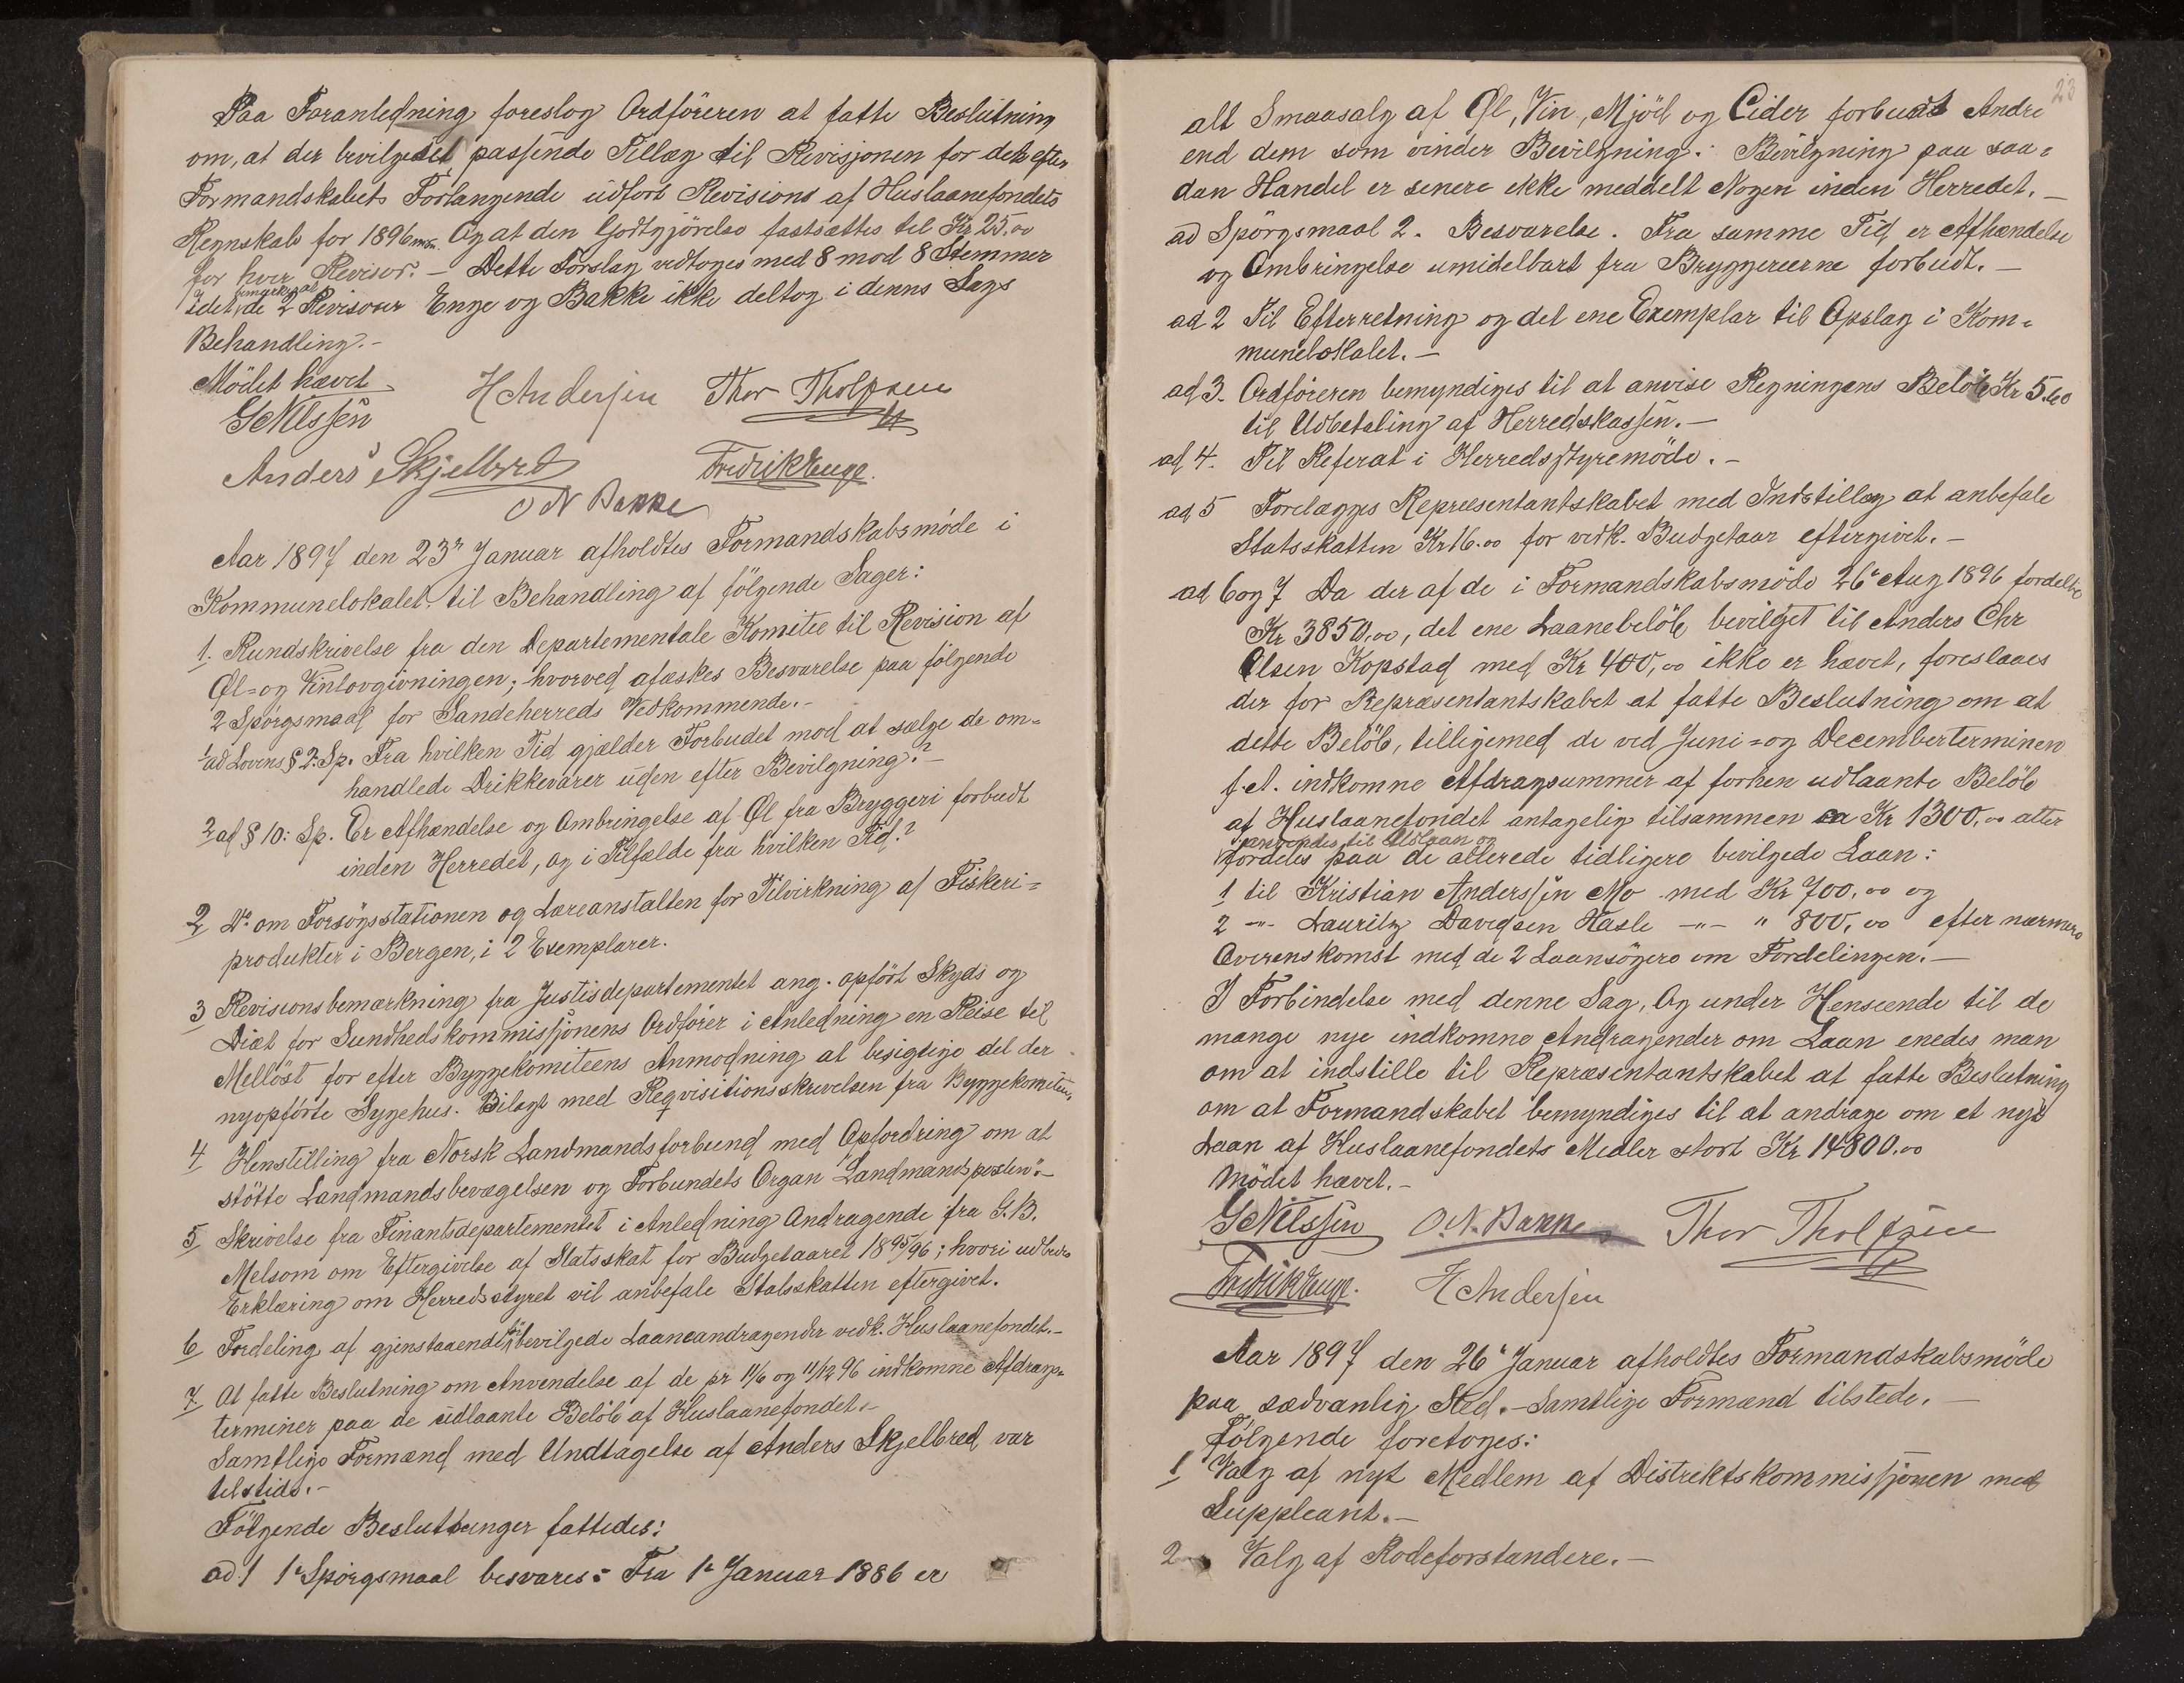 Paa Foranledning foreslog Ordføreren at fatte Beslutning
om, at der bevilgedes passende Tillæg til Revisjonen for deres efter
Formandskabets Forlangende udført Revisions af Huslaanefondets
Regnskab for 1896 Og at den Godtgjørelse fastsættes til Kr 25,00
for hver Revisor. – Dette Forslag vedtoges med 8 mod 8 Stemmer
idet bemærkes at de 2 Revisorer Enge og Bakke ikke deltog i denne Sags
Behandling.-
Mödet hævet
G Nilssen H Andersen Thor Tholfsen
Anders Skjelbred Fredrik Enge.
O N Bakke
Aar 1897 den 23r Januar afholdtes Formandskabsmöde i
Kommunelokalet til Behandling af fölgende Sager:
1. Rundskrivelse fra den Departementale Komitee til Revision af
Øl= og Vinlovgivningen; hvorved afæskes Besvarelse paa fölgende
2 Spörgsmaal for Sandeherreds Vedkommende.-
1 ad Lovens § 2: Sp. Fra hvilken Tid gjælder Forbudet mod at sælge de om=
handlede Drikkevarer uden efter Bevilgning?-
2 ad § 10: Sp. Er Afhændelse og Ombringelse af Øl fra Bryggeri forbudt
inden Herredet, og i Tilfælde fra hvilken Tid?
2 Do om Forsögsstationen og Læreanstalten for Tilvirkning af Fiskeri=
produkter i Bergen, i 2 Exemplarer.
3 Revisionsbemærkning fra Justisdepartementet ang. opfört Skyds og
Diæt for Sundhedskommissjonens Ordförer i Anledning en Reise til
Mellöst for efter Byggekomiteens Anmodning at besigtige det der
nyopförte Sygehus. Bilagt med Reqvisitionsskrivelsen fra Byggekomiteen,
4 Henstilling fra Norsk Landmandsforbund med Opfordring om at
stötte Landmandsbevægelsen og Forbundets Organ "Landmandsposten".-
5 Skrivelse fra Finantsdepartementet i Anledning Andragende fra G.B.
Melsom om Eftergivelse af Statsskat for Budgetaaret 1895/96; hvori udbedes
Erklæring om Herredsstyret vil anbefale Statsskatten eftergivet.
6 Fordeling af gjenstaaende bevilgede Laaneandragender vedk. Huslaanefondet.-
7 At fatte Beslutning om Anvendelse af de pr 11/6 og 11/12 96 indkomne Afdrags=
terminer paa de udlaante Belöb af Huslaanefondet.-
Samtlige Formænd med Undtagelse af Anders Skjelbred var
tilstede.-
Fölgende Beslutninger fattedes:
ad 1 1ste Spörgsmaal besvares: Fra 1ste Januar 1886 er
23
alt Smaasalg af Øl, Vin, Mjöd og Cider forbudt Andre
end dem som vinder Bevilgning. Bevilgning paa saa=
dan Handel er senere ikke meddelt Nogen inden Herredet.-
ad Spörgsmaal 2. Besvarelse. Fra samme Tid er Afhændelse
og Ombringelse umidelbart fra Bryggerierne forbudt.-
ad 2 Til Efterretning og det ene Exemplar til Opslag i Kom=
munelokalet.-
ad 3. Ordföreren bemyndiges til at anvise Regningens Belöb Kr 5.60
til Udbetaling af Herredskassen.-
ad 4. Til Referat i Herredsstyremöde.-
ad 5 Forelægges Repræsentantskabet med Indstilling at anbefale
Statsskatten Kr 16.00 for vedk. Budgetaar eftergivet.-
ad 6 og 7 Da der af de i Formandskabsmöde 26de Aug 1896 fordelte
Kr 3850,00, det ene Laanebelöb bevilget til Anders Chr
Olsen Kopstad med Kr 400,00 ikke er hævet, foreslaaes
der for Repræsentantskabet at fatte Beslutning om at
dette Belöb, tilligemed de ved Juni= og Decemberterminen
f.A. indkomne Afdragsummer af forhen udlaante Belöb
af Huslaanefondet antagelig tilsammen ca Kr 1300,00 atter
anvendes til Udlaan og
fordeles paa de allerede tidligere bevilgede Laan:
1 til Kristian Anderssen Mo med Kr 700,00 og
2 -"- Lauritz Davidsen Hasle -"- " 800,00 efter nærmere
Overenskomst med de 2 Laansögere om Fordelingen.-
I Forbindelse med denne Sag, Og under Henseende til de
mange nye indkomne Andragender om Laan enedes man
om at indstille til Repræsentantskabet at fatte Beslutning
om at Formandskabet bemyndiges til at andrage om et nyt
Laan af Huslaanefondets Midler stort Kr 14800,00
Mödet hævet.-
G Nilssen O. N. Bakke Thor Tholfsen
Fredrik Enge. H Andersen
Aar 1897 den 26de Januar afholdtes Formandskabsmöde
paa sædvanlig Sted.- Samtlige Formænd tilstede.-
Fölgende foretoges:
1 Valg af nyt Medlem af Distriktskommissjonen med
Suppleant.-
2 Valg af Rodeforstandere.-